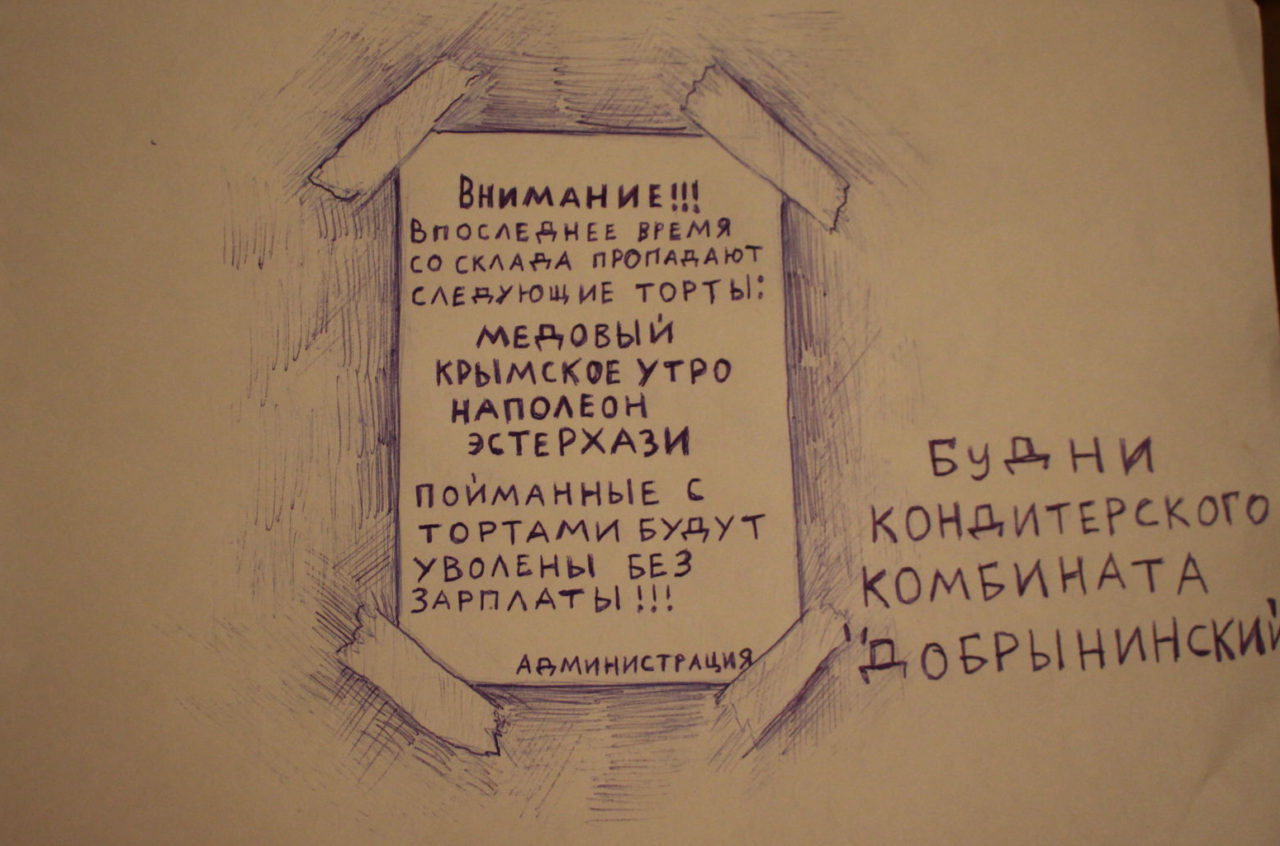 Внимание!!!
Впоследнее время
со склада пропадают
следующие торты:
медовый
крымское утро
наполеон
эстерхази
пойманные с
тортами будут
уволены без
зарплаты!!!
Администрация
Будни
кондитерского
комбината
"Добрынинский